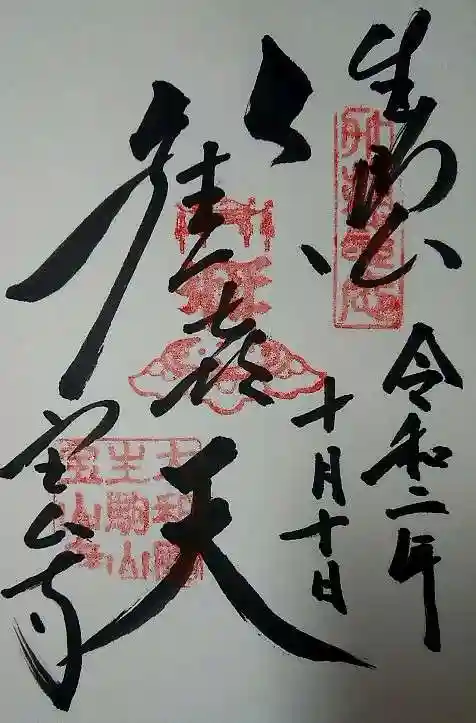 生駒山
令和二年
十月十日
歓喜天
宝山寺
大和國
生駒山
宝山寺